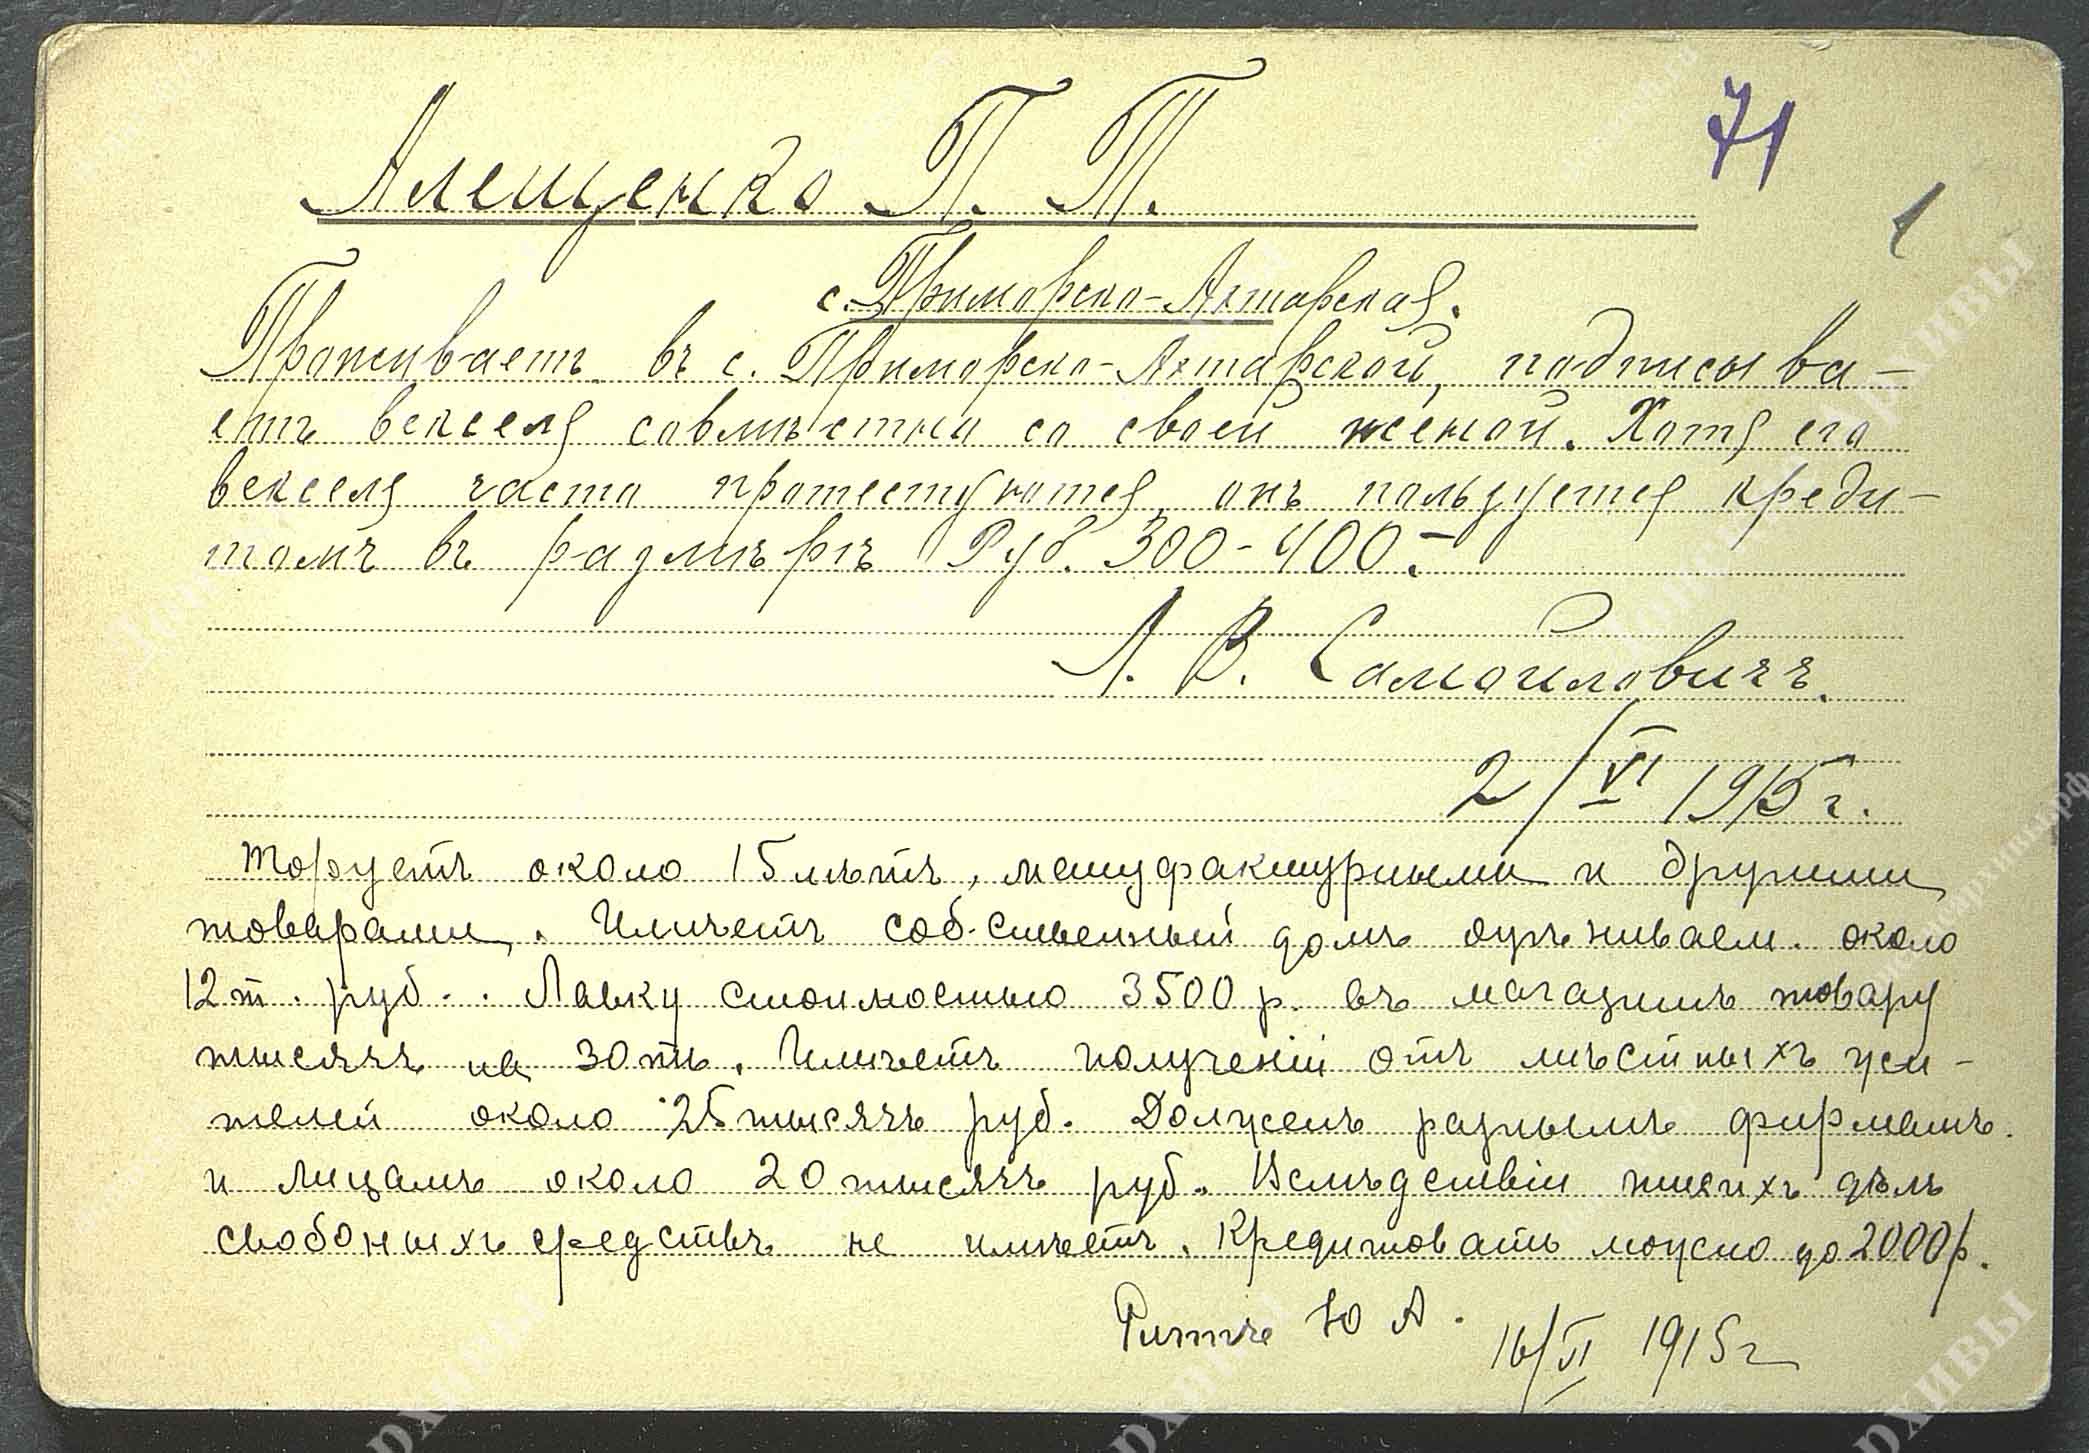 71
1
Алещенко П. Т.
с. Приморско-Ахтарская.
Проживаетъ въ с. Приморско-Ахтарской, подписыва-
етъ векселя совмѣстно со своей женой. Хотя его
векселя часто протестуются, онъ пользуется креди-
томъ въ размѣрѣ Руб. 300-400.-
Л. В. Самойловичъ.
2/VI 1915 г.
Торгуетъ около 15 лѣтъ, мануфактурными и другими
товарами. Имѣетъ собственный домъ оцѣниваем. около
12 т. руб.. Лавку стоимостью 3500 р. въ магазинѣ товару
тысячъ на 30ть. Имѣетъ полученій отъ мѣстныхъ жи-
телей около 25 тысячъ руб. Долженъ разнымъ фирмамъ
и лицамъ около 20 тысячъ руб. Вслѣдствіи такихъ дѣлъ
свобоныхъ средствъ не имѣетъ. Кредитовать можно до 2000 р.
Ю А.
16/VI 1915 г